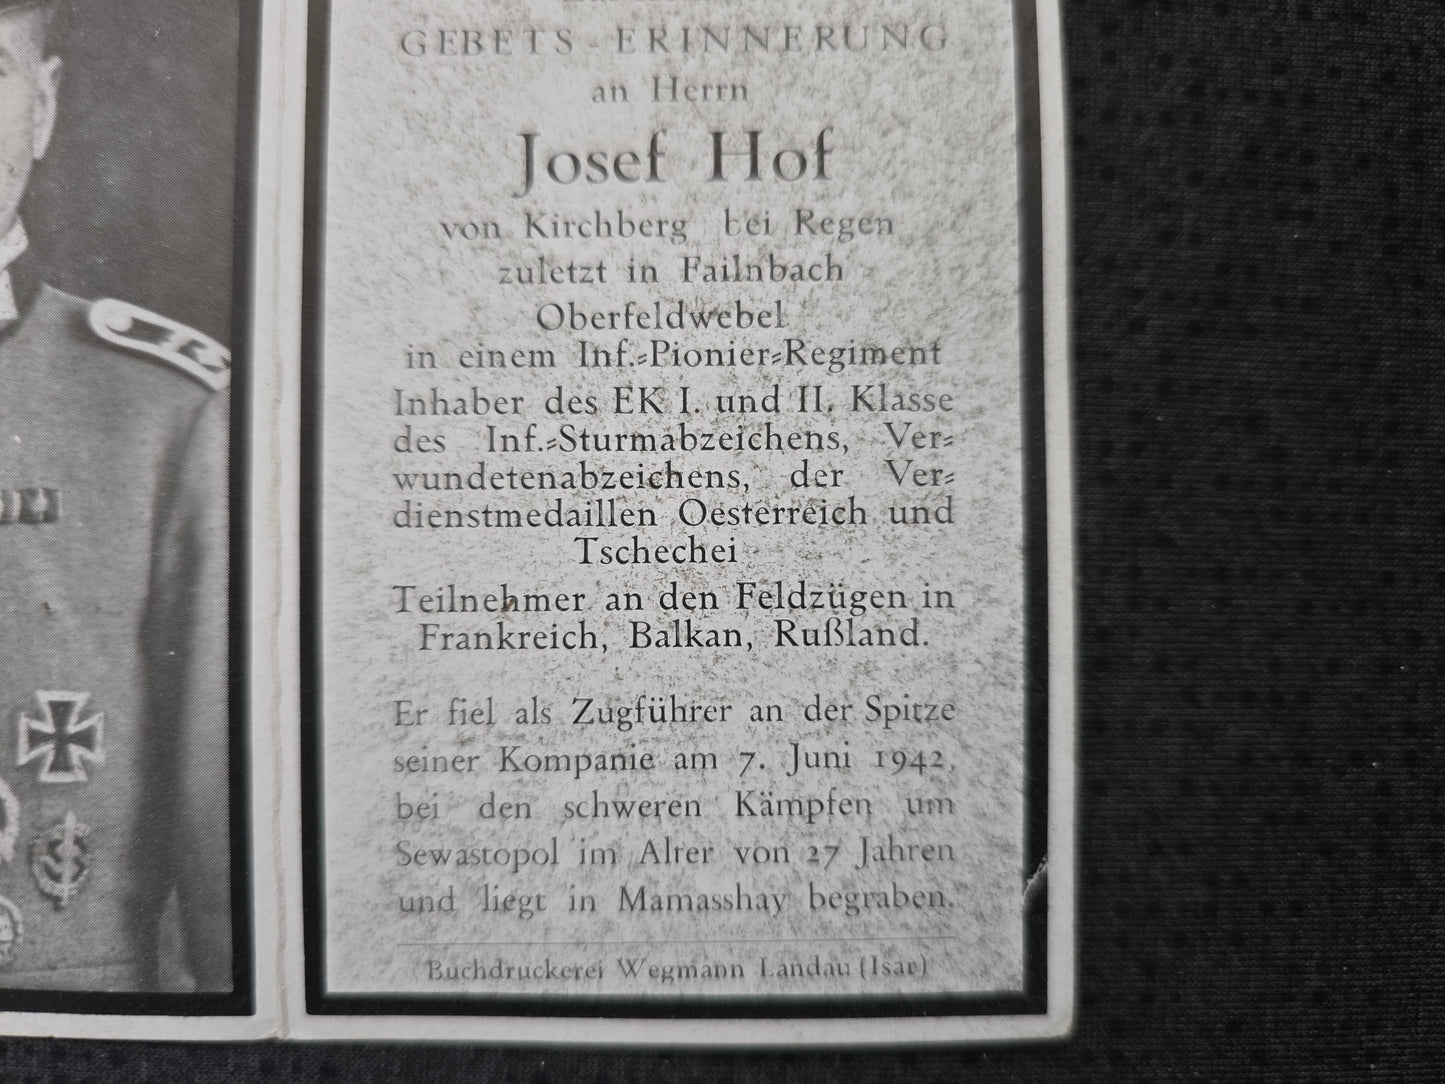 GEBETS-ERINNERUNG
an Herrn
Josef Hof
von Kirchberg bei Regen
zuletzt in Failnbach
Oberfeldwebel
in einem Inf.=Pionier=Regiment
Inhaber des EK I. und II. Klasse
des Inf.=Sturmabzeichens, Ver=
wundetenabzeichens, der Ver=
dienstmedaillen Oesterreich und
Tschechei
Teilnehmer an den Feldzügen in
Frankreich, Balkan, Rußland.
Er fiel als Zugführer an der Spitze
seiner Kompanie am 7. Juni 1942,
bei den schweren Kämpfen um
Sewastopol im Alter von 27 Jahren
und liegt in Mamasshay begraben.
Buchdruckerei Wegmann Landau (Isar)